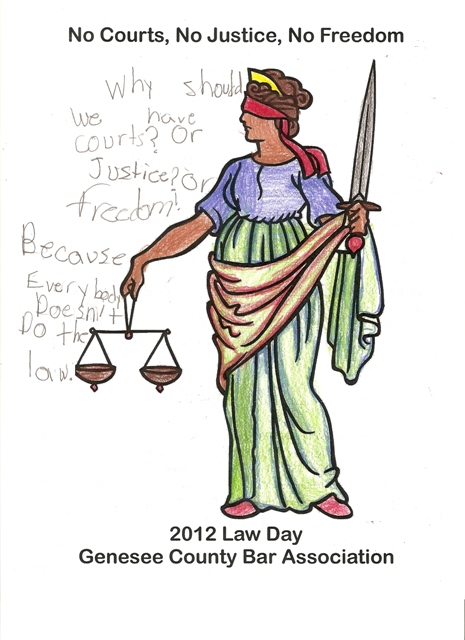 No Courts, No Justice, No Freedom
Why should
we have
courts? Or
Justice? Or
freedom!
Because
Everybody
Doesn't
Do the
law.
2012 Law Day
Genesee County Bar Association